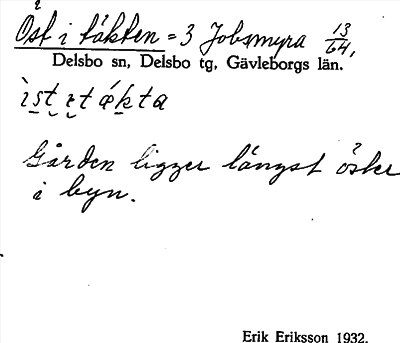 Öst i täkten = 3 Jobsmyra 13/64,
Delsbo sn, Delsbo tg, Gävleborgs län.
Gården ligger längst öster
i byn.
Erik Eriksson 1932.